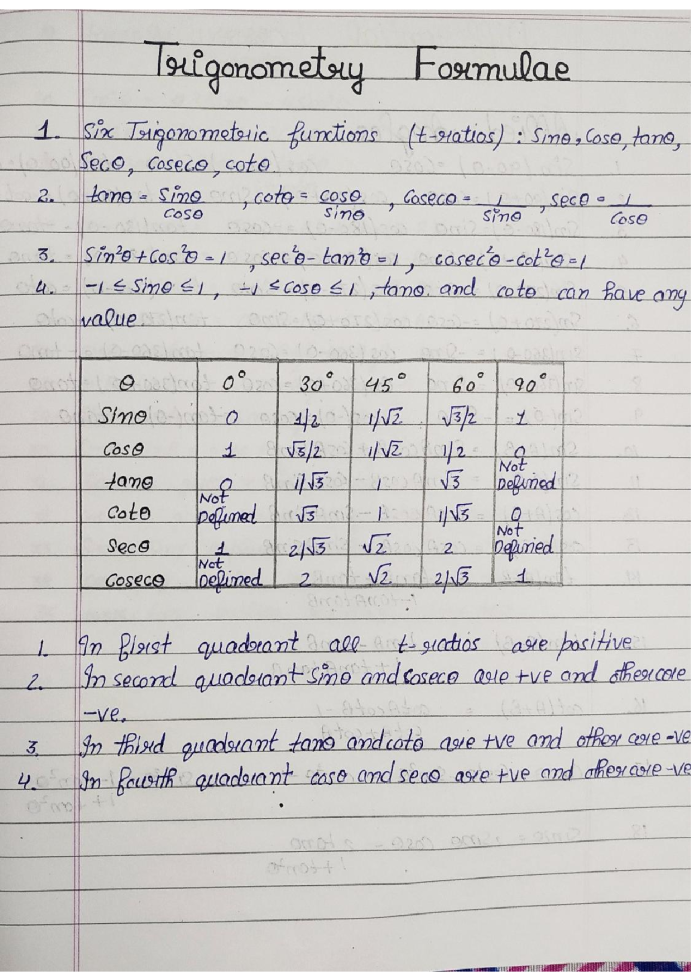 Trigonometry Formulae
1. Six Trigonometric functions (t-ratios) : Sinθ, Cosθ, tanθ,
Secθ, Cosecθ, cotθ
2. tanθ = Sinθ/cosθ , cotθ = cosθ/sinθ , Cosecθ = 1/Sinθ , secθ = 1/Cosθ
3. Sin²θ + Cos²θ = 1 , sec²θ - tan²θ = 1 , cosec²θ - cot²θ = 1
4. -1 ≤ Sinθ ≤ 1, -1 ≤ cosθ ≤ 1 , tanθ. and cotθ can have any
value.
θ 0° 30° 45° 60° 90°
Sinθ 0 1/2 1/√2 √3/2 1
Cosθ 1 √3/2 1/√2 1/2 0
tanθ 0 1/√3 1 √3 Not Defined
Cotθ Not Defined √3 1 1/√3 0
Secθ 1 2/√3 √2 2 Not Defined
Cosecθ Not Defined 2 √2 2/√3 1
1. In first quadrant all t-ratios are positive
2. In second quadrant Sinθ and Cosecθ are +ve and other are
-ve.
3. In third quadrant tanθ and cotθ are +ve and other are -ve
4. In fourth quadrant cosθ and secθ are +ve and other are -ve